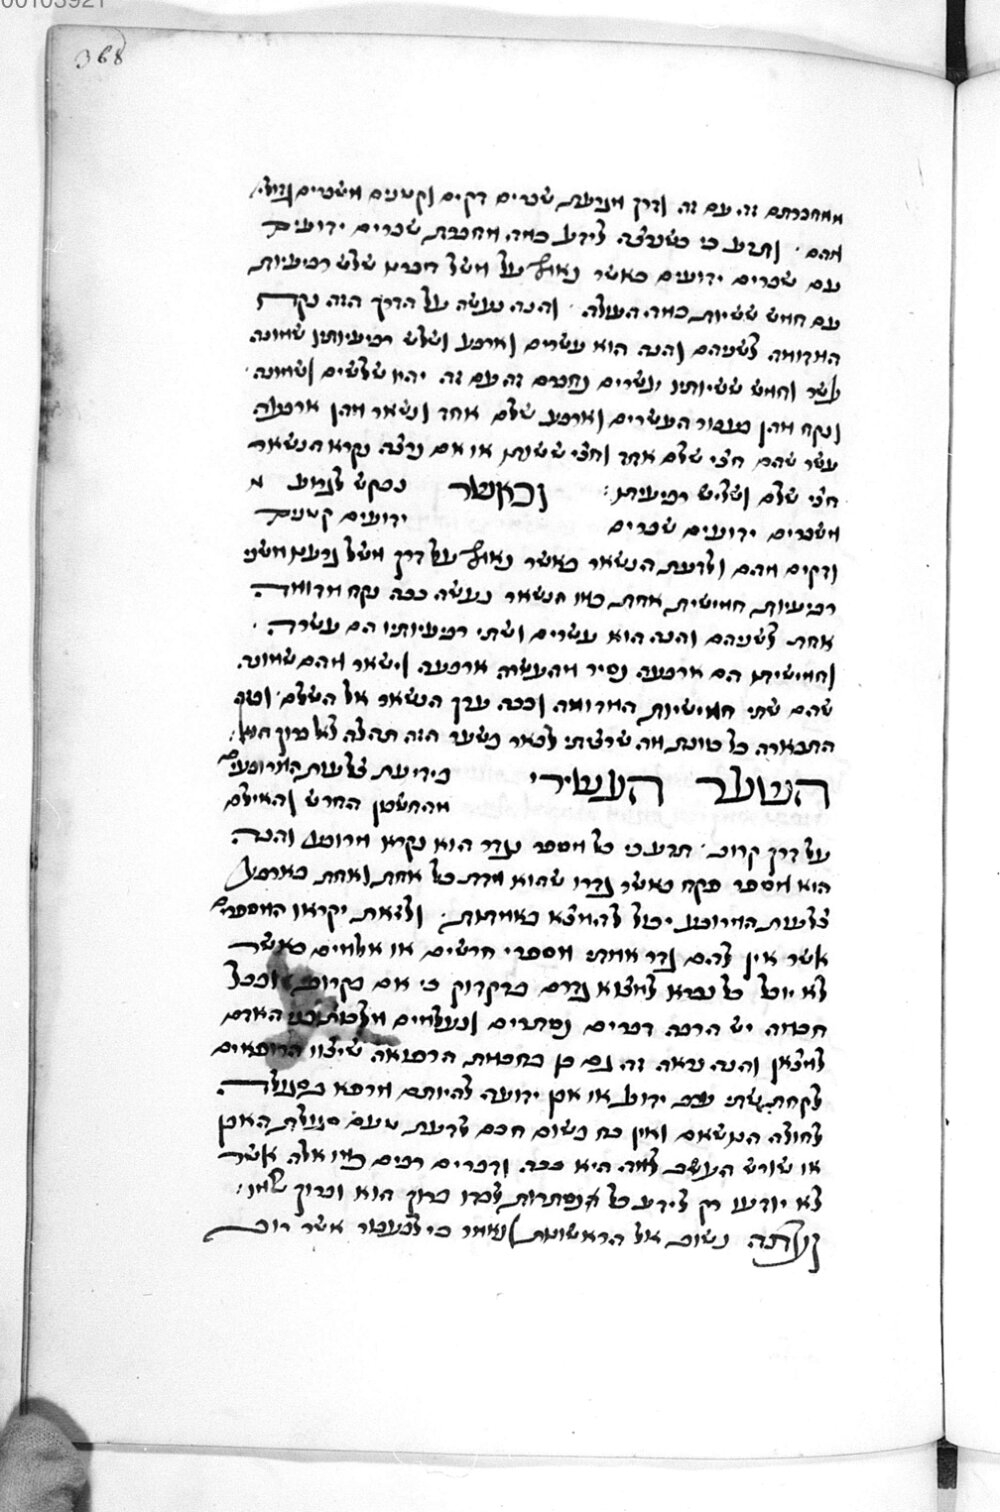 00103921
368
מחברתם זה עם זה ודרך מגרעת שברים דקים וקטנים משברים גדולי
מהם ותדע כי כשנרצה לידע כמה מחברת שברים ידועים
עם שברים ידועים כאשר נאמר על משל דברינו שלש רביעיות
עם חמש ששיות כמה העולה והנה נעשה על הדרך הזה נקח
המדומה לשניהם והנה הוא עשרים וארבע ושלש רביעיותיו שמונה
עשר וחמש ששיותיו עשרים נחברם זה עם זה יהיו שלשים ושמונה
נקח מהן בעבור העשרים וארבע שלם אחד ונשאר מהן ארבעה
עשר שהם חצי שלם אחד וחצי ששית או אם נרצה נקרא הנשאר
חצי שלם ושליש רביעית: וכאשר נבקש לגרוע
משברים ידועים שברים ידועים קטנים
ודקים מהם ולדעת הנשאר כאשר נאמר על דרך משל נגרע משני
רביעיות חמישית אחת כמו הנשאר נעשה ככה נקח מדומה
אחת לשניהם והנה הוא עשרים ושתי רביעיותיו הם עשרה
וחמישיתו הם ארבעה נסיר מהעשרה ארבעה וישאר מהם ששה
שהם שתי חמישיות המדומה וככה ערך הנשאר אל השלם
התבארה כל כוונת מה שרצינו לבאר בשער הזה תהלה לאל ברוך הוא:
השער העשירי בידיעת צלעות המרובעים
מהחשבון החרש והאילם
על דרך קרוב תדע כי כל מספר נגדר הוא נקרא מרובע והנה
הוא מספר פקח כאשר גדרו שהוא מדת כל אחת ואחת בארבע
צלעות המרובע יכול להמצא באמתות ולזאת יקראו המספרים
אשר אין להם גדר אמתי מספרי חרשים או אלמים כאשר
לא יוכל כל נברא למצוא גדרם בדקדוק כי אם בקרוב ובכל
חכמה יש הרבה דברים נסתרים ונעלמים מלבות בני האדם
למצאן והנה נראה זה גם כן בחכמת הרפואה שיצוו הרופאים
לקחת שתי עשב ידוע או אבן ידועה להיותם מרפא בסגולה
לחולה הנושאם ואין כח בשום חכם לדעת טעם סגולת האבן
או שורש העשב למה היא ככה ודברים רבים כמו אלה אשר
לא יודעו רק לידע כל הנסתרות לבדו ברוך הוא וברוך שמו:
ועתה נשוב אל הראשונות ונאמר כי לבעבור אשר רוב